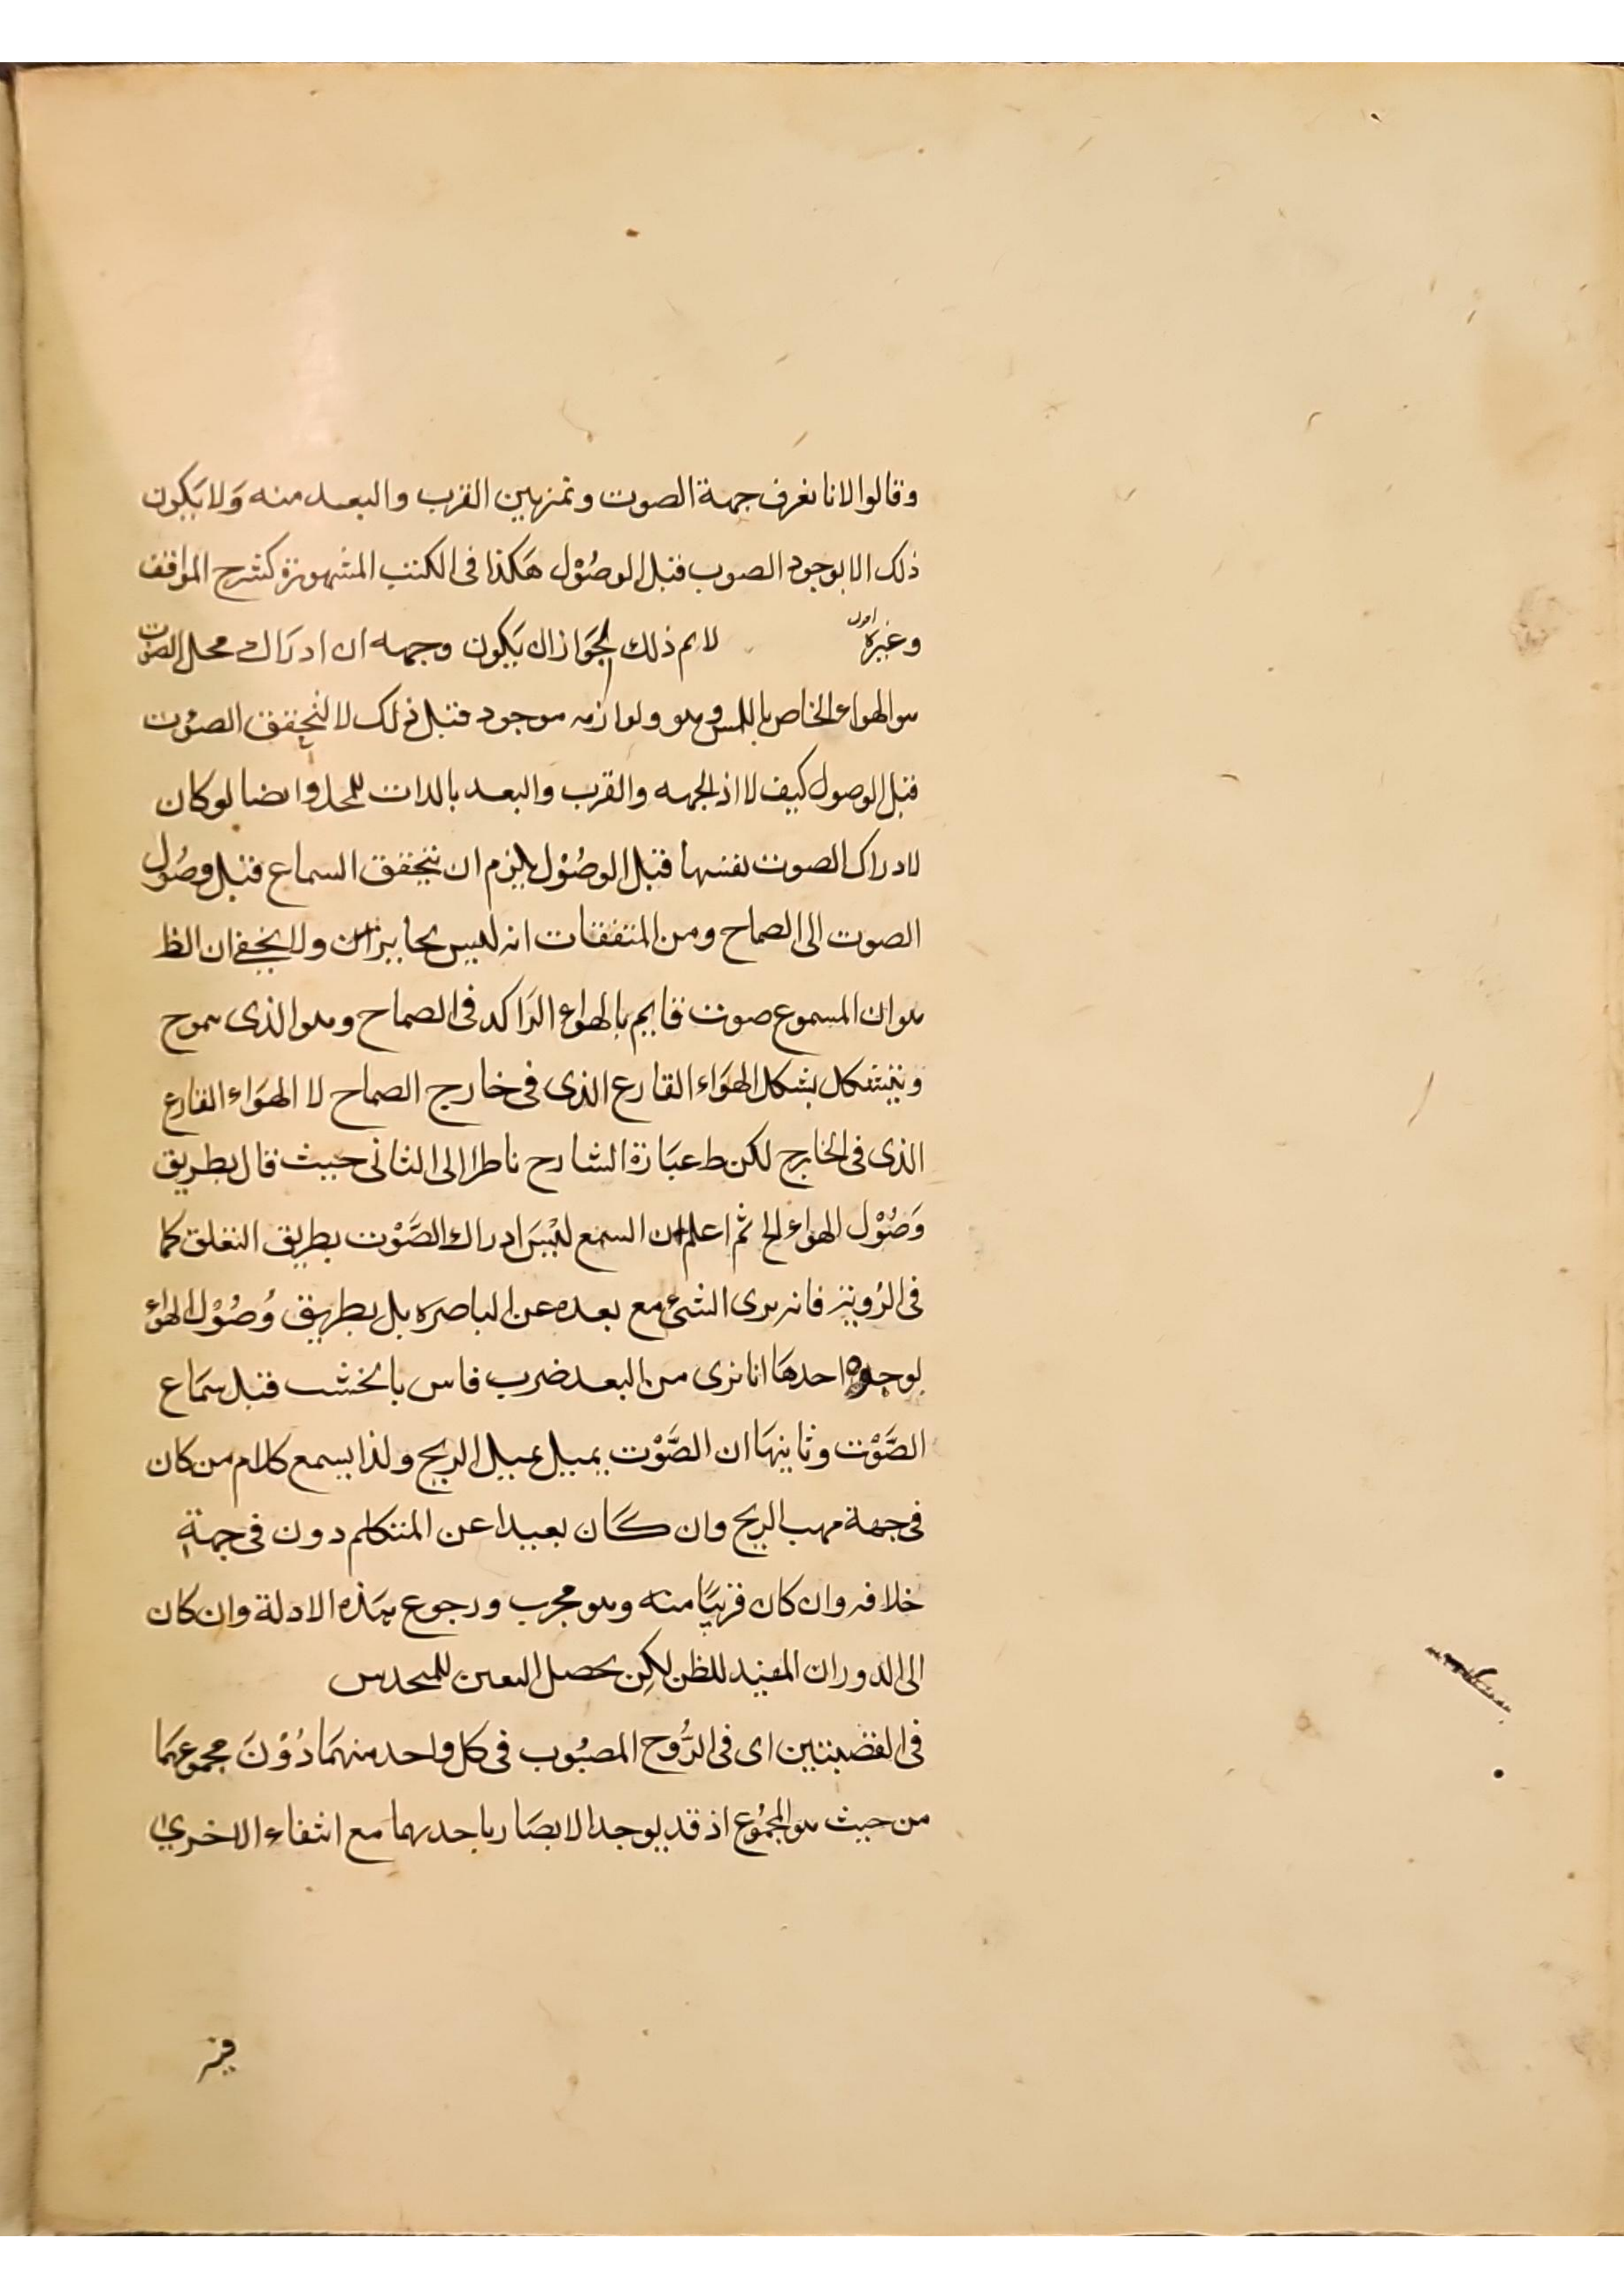 وقالوا لانا نعرف جهة الصوت ونميز بين القرب والبعد منه ولا يكون
ذلك الا بوجود الصوب قبل الوصول هكذا فى الكتب المشهورة كشرح المواقف
وغيره اقول لا نم ذلك لجواز ان يكون وجهه ان ادراك محل الصوت
هو الهواء الخاص باللمس وهو ولوازمه موجود قبل ذلك لا لتحقق الصوت
قبل الوصول كيف لا اذ الجهه والقرب والبعد بالذات للمحل وايضا لو كان
لادراك الصوت نفسها قبل الوصول يلزم ان يتحقق السماع قبل وصول
الصوت الى الصماح ومن المتفقات انه ليس بحابر ان ولا يخفى ان الظ
هو ان المسموع صوت قايم بالهواء الراكد فى الصماح وهو الذى يموج
ويتشكل بشكل الهواء القارع الذى فى خارج الصماح لا الهواء القارع
الذى فى الخارج لكن ط عبارة الشارح ناظرا الى الثانى حيث قال بطريق
وصول الهواء الخ ثم اعلم ان السمع ليس ادراك الصوت بطريق التعلق كما
فى الرؤية فانه يرى الشئ مع بعده عن الباصره بل بطريق وصول الهواء
لوجوه احدها انا نرى من البعد ضرب فاس بالخشب قبل سماع
الصوت وثانيها ان الصوت يميل بميل الريح ولذا يسمع كلام من كان
فى جهة مهب الريح وان كان بعيدا عن المتكلم دون فى جهة
خلافه وان كان قريبا منه وهو مجرب ورجوع هذه الادلة وان كان
الى الدوران المفيد للظن لكن يحصل اليقين للمحدس
فى القضبتين اى فى الروح المصبوب فى كل واحد منهما دون مجموعهما
من حيث هو المجموع اذ قد يوجد الابصار باحديهما مع انتفاء الاخرى